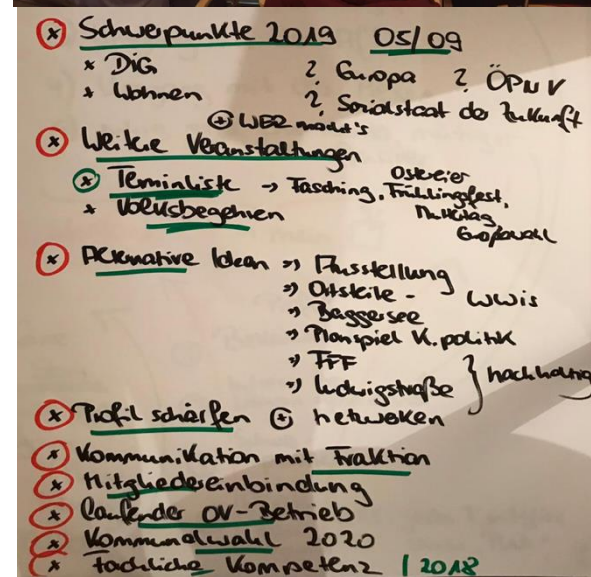 Schwerpunkte 2019 05/09
* DiG ? Europa ? ÖPNV
* Wohnen ? Sozialstaat der Zukunft
⊕ WER macht's
Weitere Veranstaltungen
Terminliste → Fasching, Ostereier
Frühlingsfest,
Muttertag
* Volksbegehren
Alternative Ideen => Ausstellung
=> Ortsteile - WWIS
=> Baggersee
=> Planspiel K.politik
=> FFF
=> Ludwigstraße } nachhaltig
Profil schärfen ⊕ netwoken
Kommunikation mit Fraktion
Mitgliedereinbindung
Laufender OV-Betrieb
Kommunalwahl 2020
fachliche Kompetenz | 2018